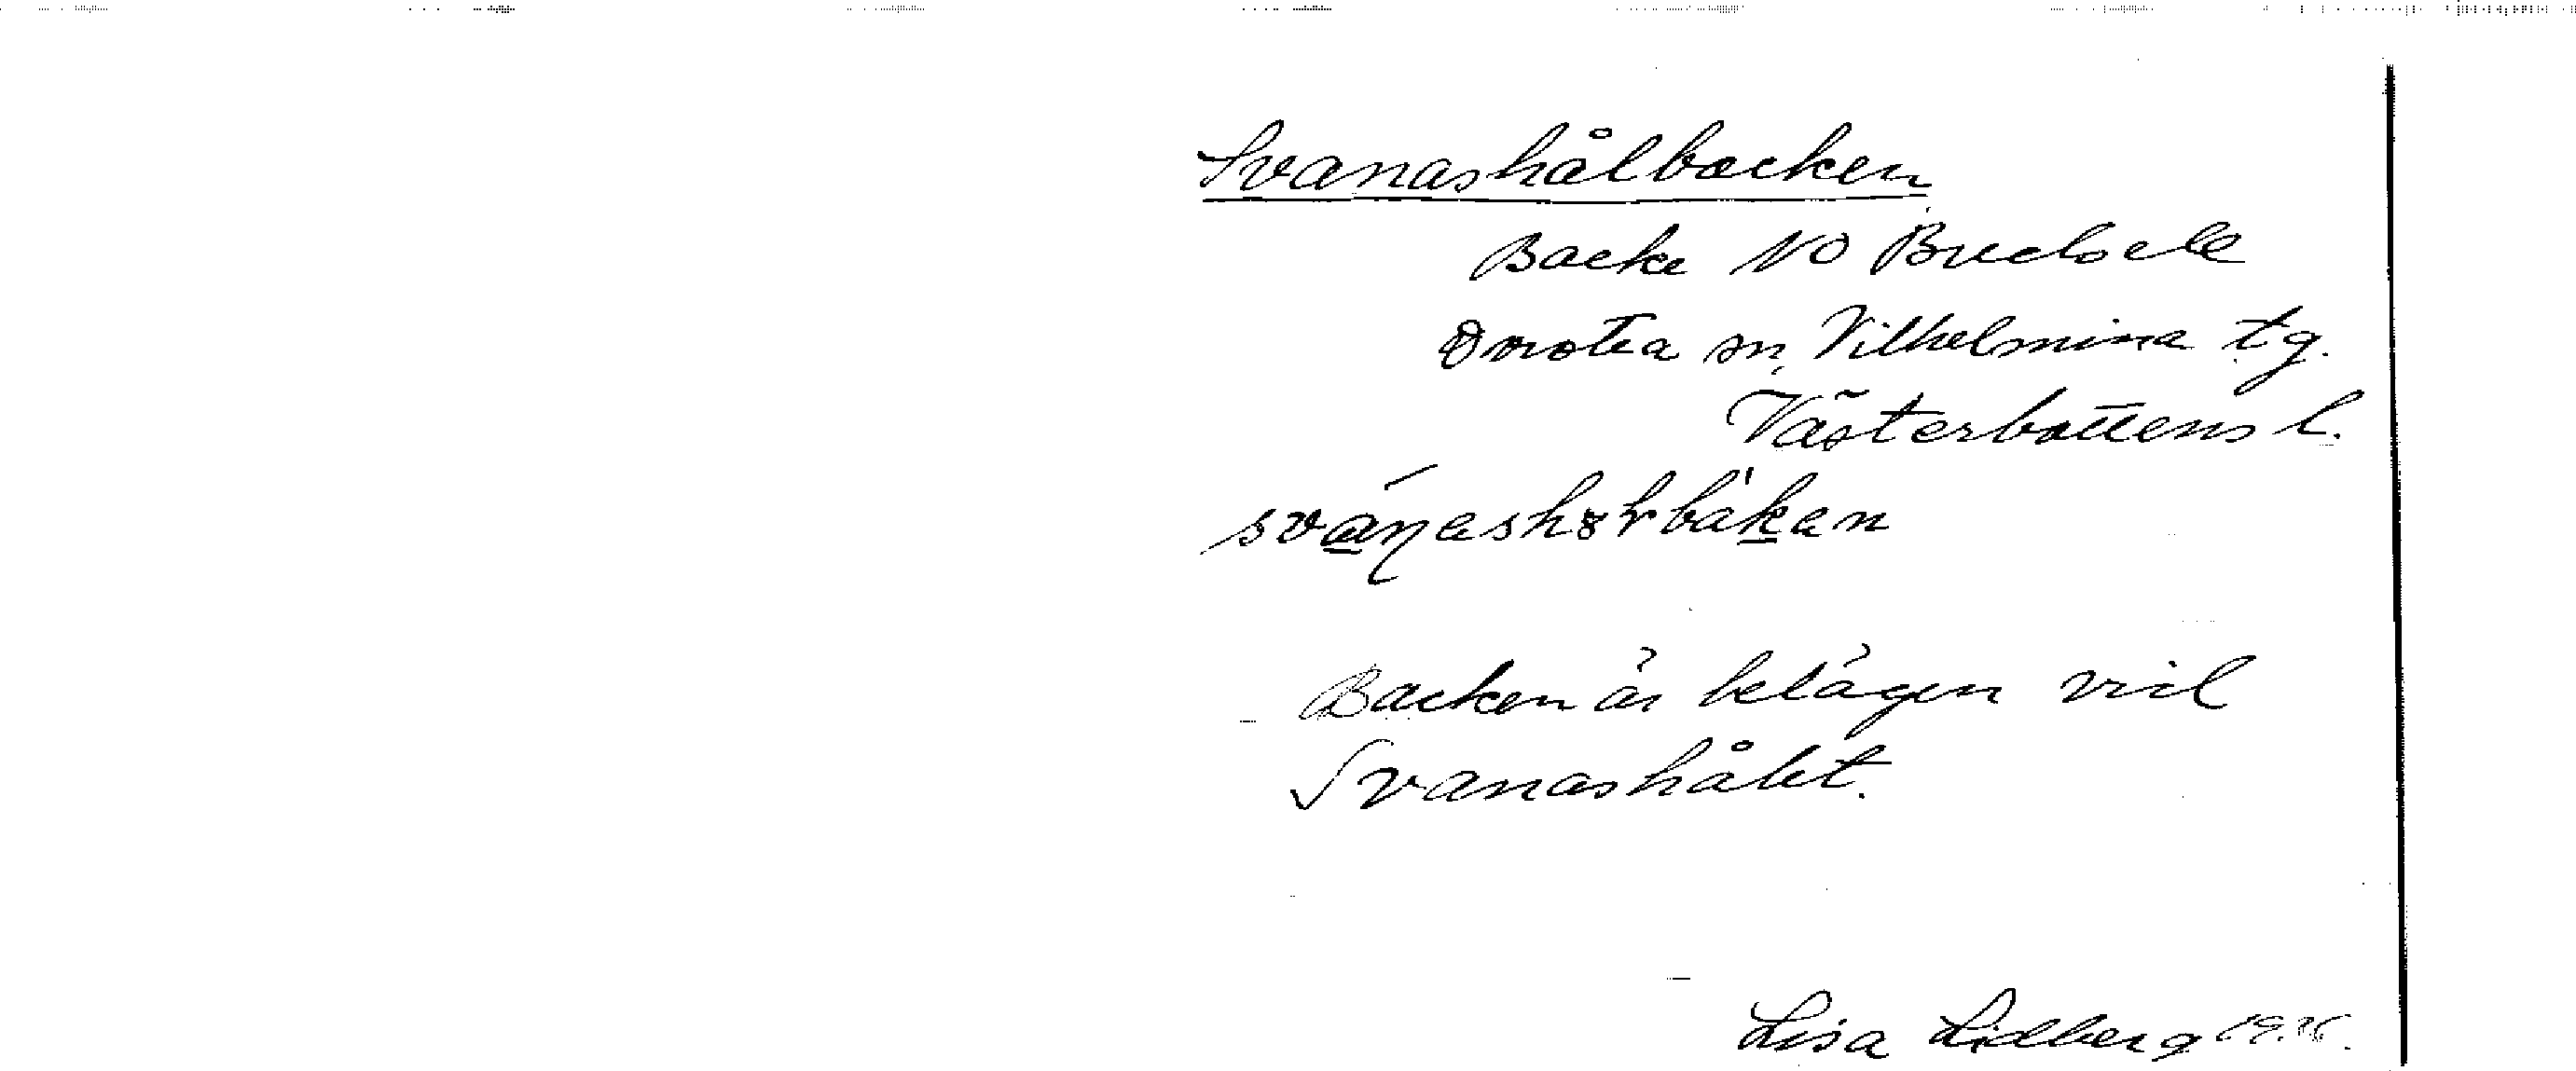 Svanashålbacken
Backe NO Bredsele
Dorotea sn, Vilhelmina tg.
Västerbottens l.
Backen är belägen vid
Svanashålet.
Lisa Lidberg